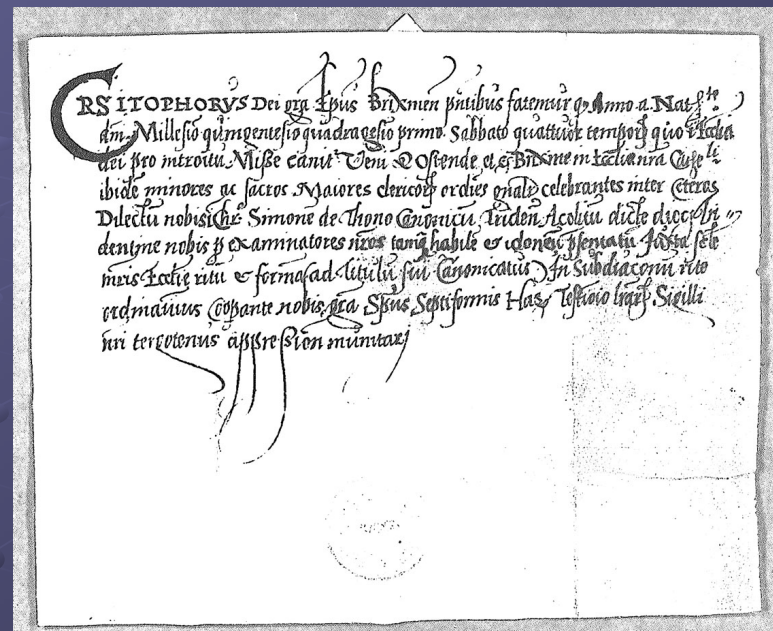 CRSITOPHORVS Dei gra Epus Brixmen pntibus fatemur q Anno a Nat
dni Millesio quingentesio quadragesio primo Sabbato quattuor tempor quo i Ecclia
dei pro introitu Misse canit Veni & Ostende et Brixmen in Ecclia nra
ibide minores ac sacros Maiores clericor ordies celebrantes inter ceteros
Dilectu nobis Simone de Thono Canonicu Triden Acolitu dicte dioc
dentine nobis p examinatores nros tanq habile & idoneu psentatu Juxta
mris Ecclie ritu & forma ad titulu sui Canonicatus In Subdiaconu rite
ordinauimus Coopante nobis gra Spus Septiformis Har Testioio lrar Sigilli
nri tergotenus appression munitar